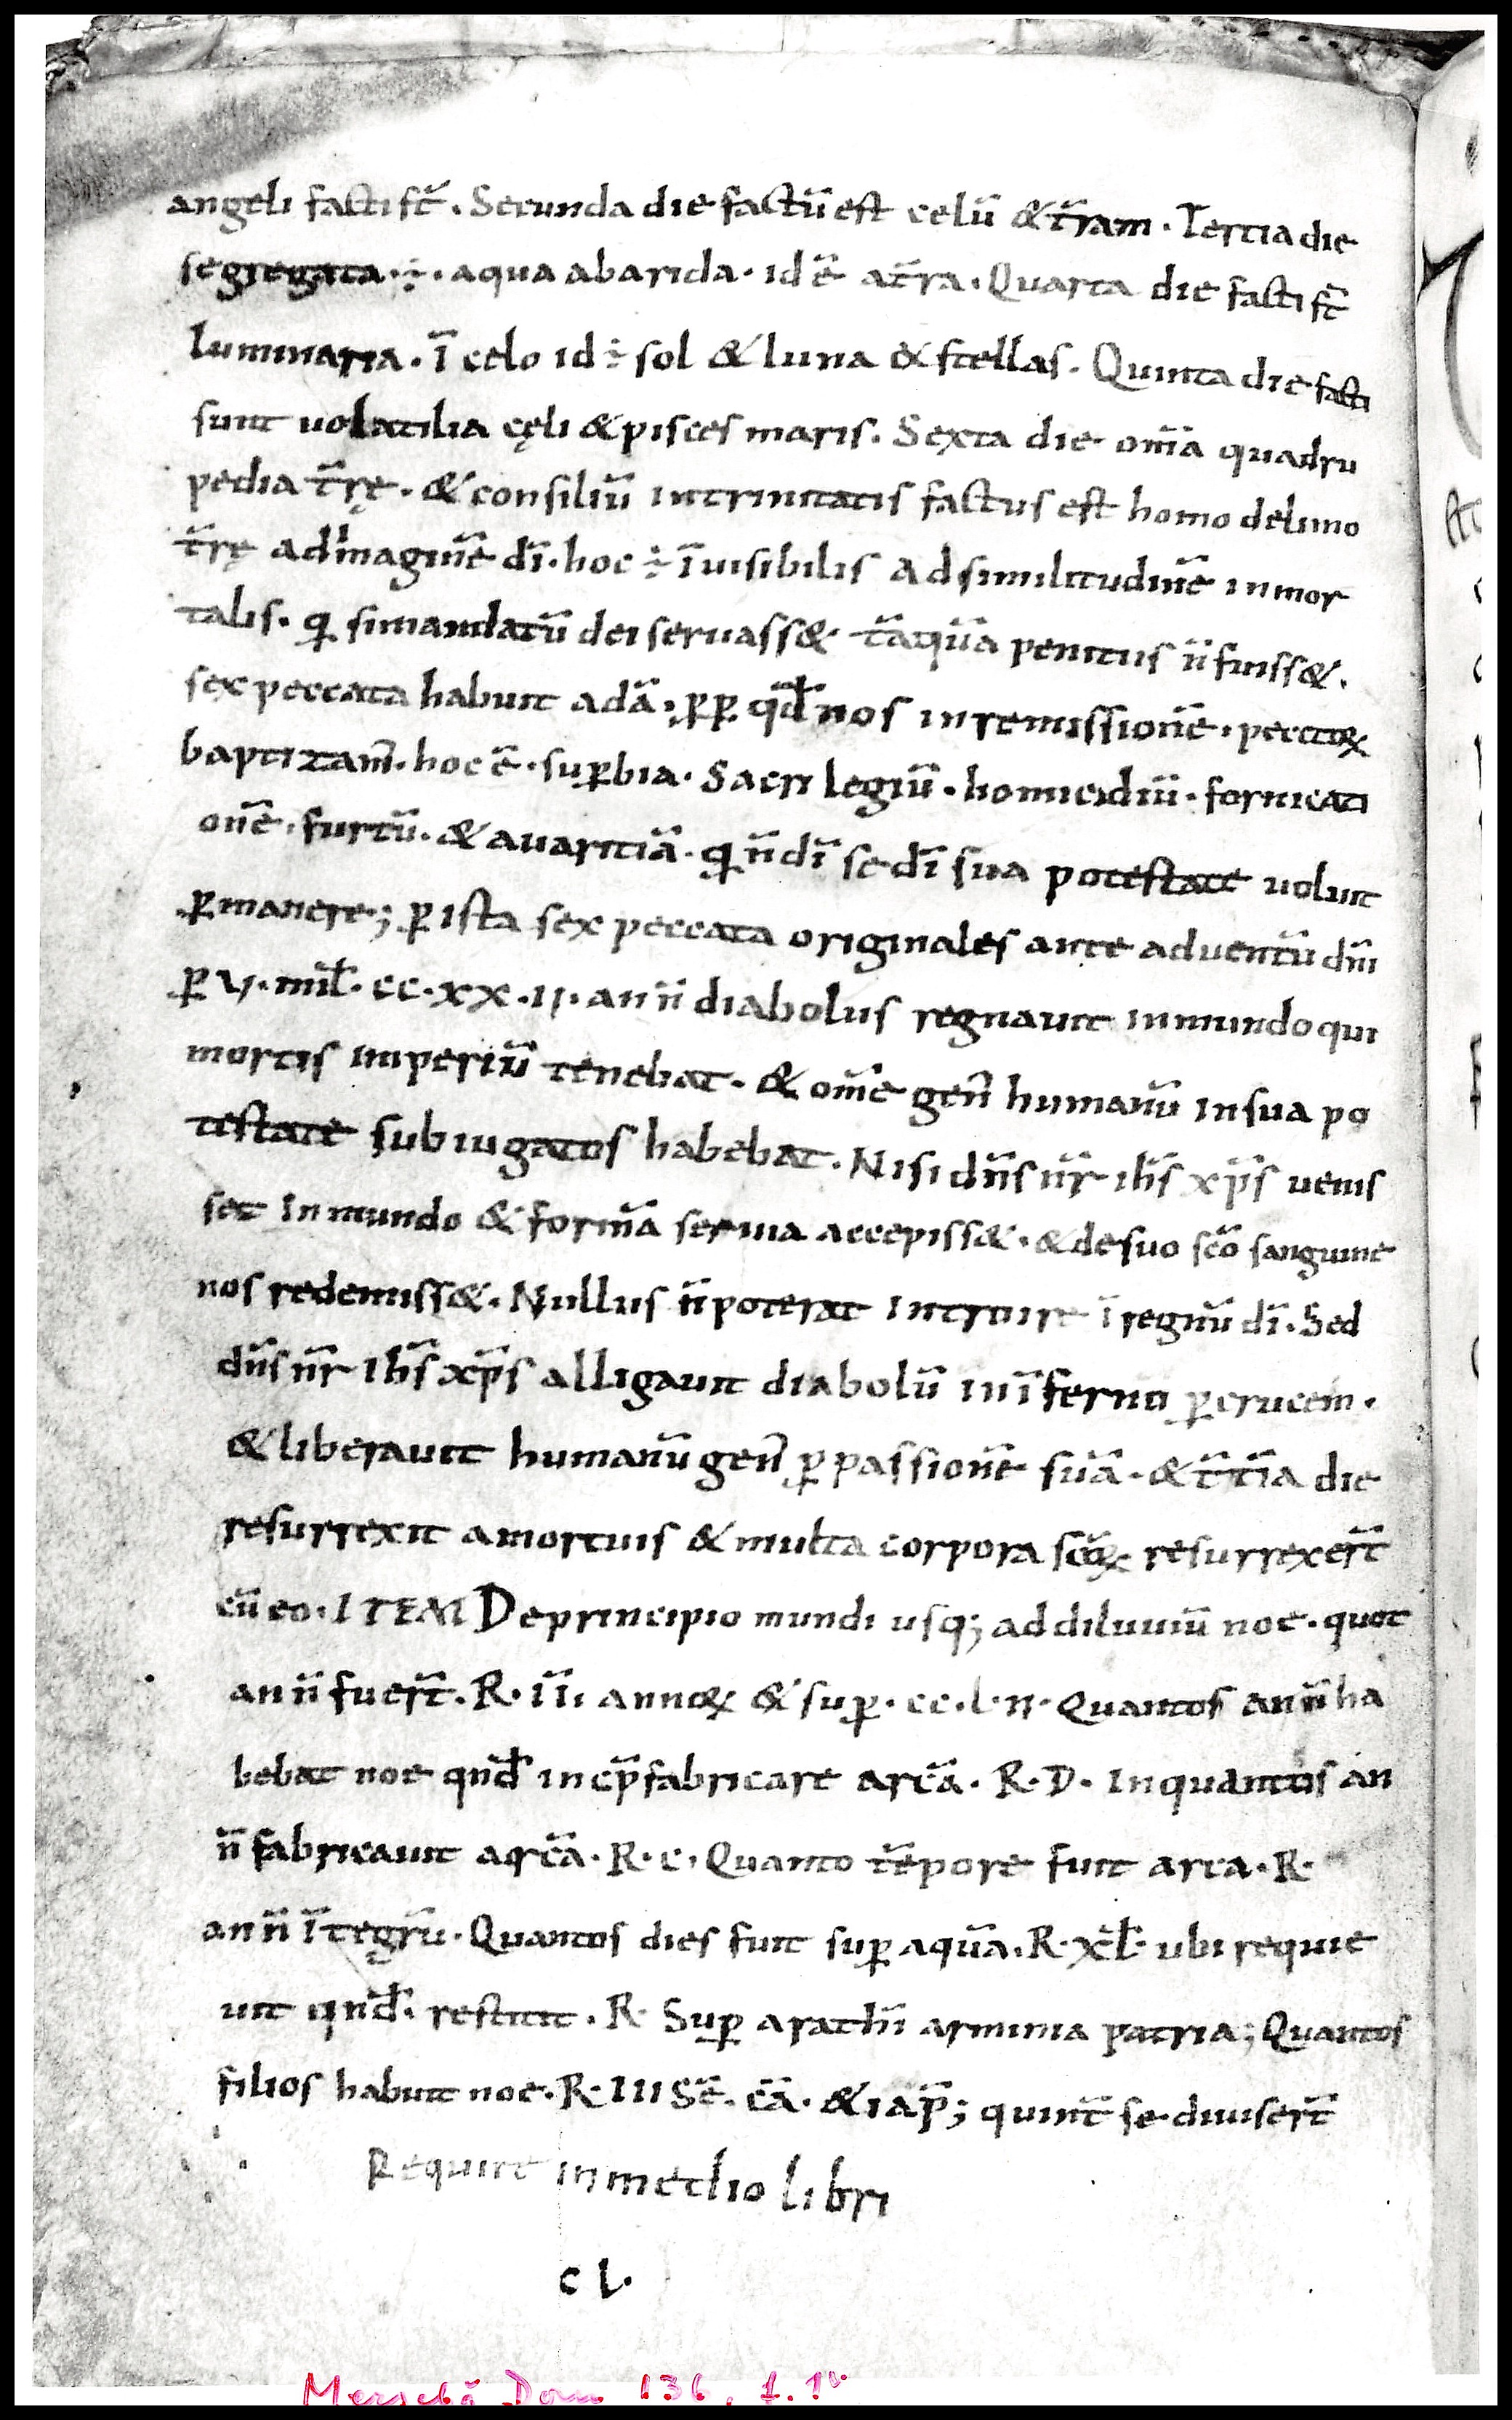 angeli facti st̄. Secunda die factū est celū & t̄ram. Tertia die
segregata ÷. aqua ab arida. id ē a t̄ra. Quarta die facti st̄
luminaria. ī celo id ÷ sol & luna & stellas. Quinta die facti
sunt uolatilia cęli & pisces maris. Sexta die om̄a quadru
pedia t̄rę. & consiliū in trinitatis factus est homo de limo
t̄rę ad imaginē dī. hoc ÷ īuisibilis ad similitudinē inmor
talis. qi si mandatū dei seruass& t̄aquā penitus n̄ fuiss&.
sex peccata habuit adā. ꝓꝑ qd̄ nos in remissionē. pecctoꝝ
baptizam̄. hoc ē. suꝑbia. Sacrilegiū. homicidiū. fornicati
onē. furtū. & auaritiā. qi n̄ dī se dī sua potestate uoluit
ꝑmanere; ꝑ ista sex peccata originales ante aduentū dn̄i
ꝑ VI. mil̄. cc. xx. II. ann̄ diabolus regnauit in mundo qui
mortis imperiū tenebat. & om̄e gen̄ humanū in sua po
testate subiugatos habebat. Nisi dn̄s nr̄ ih̄s xp̄s uenis
set in mundo & formā seruia accepiss&. & de suo sc̄o sanguine
nos redemiss&. Nullus n̄ poterat introire ī regnū dī. Sed
dn̄s nr̄ ih̄s xp̄s alligauit diabolū in īferno ꝑ crucem.
& liberauit humanū gen̄ ꝑ passionē suā. & t̄tīa die
resurrexit a mortuis & multa corpora sc̄oꝝ resurrexer̄t
cū eo. ITEM De principio mundi usq; ad diluuiū noe. quot
ann̄ fuer̄t. R. IĪ. annoꝝ & suꝑ. cc. l. II. Quantos ann̄ ha
bebat noe qnd̄ incp̄ fabricare arcā. R. D. In quantos an
n̄ fabricauit aqrcā. R. c. Quanto tēpore fuit arca. R.
ann̄ ītegrū. Quantos dies fuit suꝑ aquā. R. xl̄. ubi requie
uit qnd̄. restitit. R. Suꝑ arath̄i arminia patria; Quantos
filios habuit noe. R. III Sē. cā. & iap̄; quint̄ se diuiser̄t
Require in medio libri
cl.
Merseb. Dom 136, f. 1v